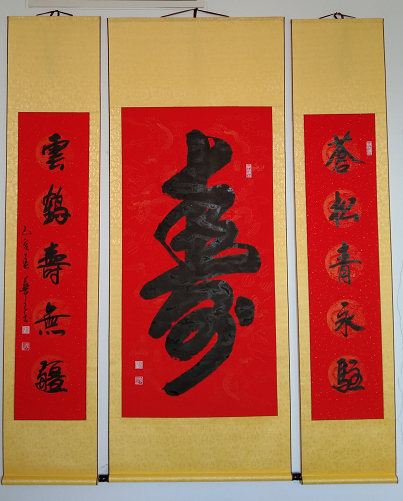 蒼松青永駐
壽
雲鶴壽無疆